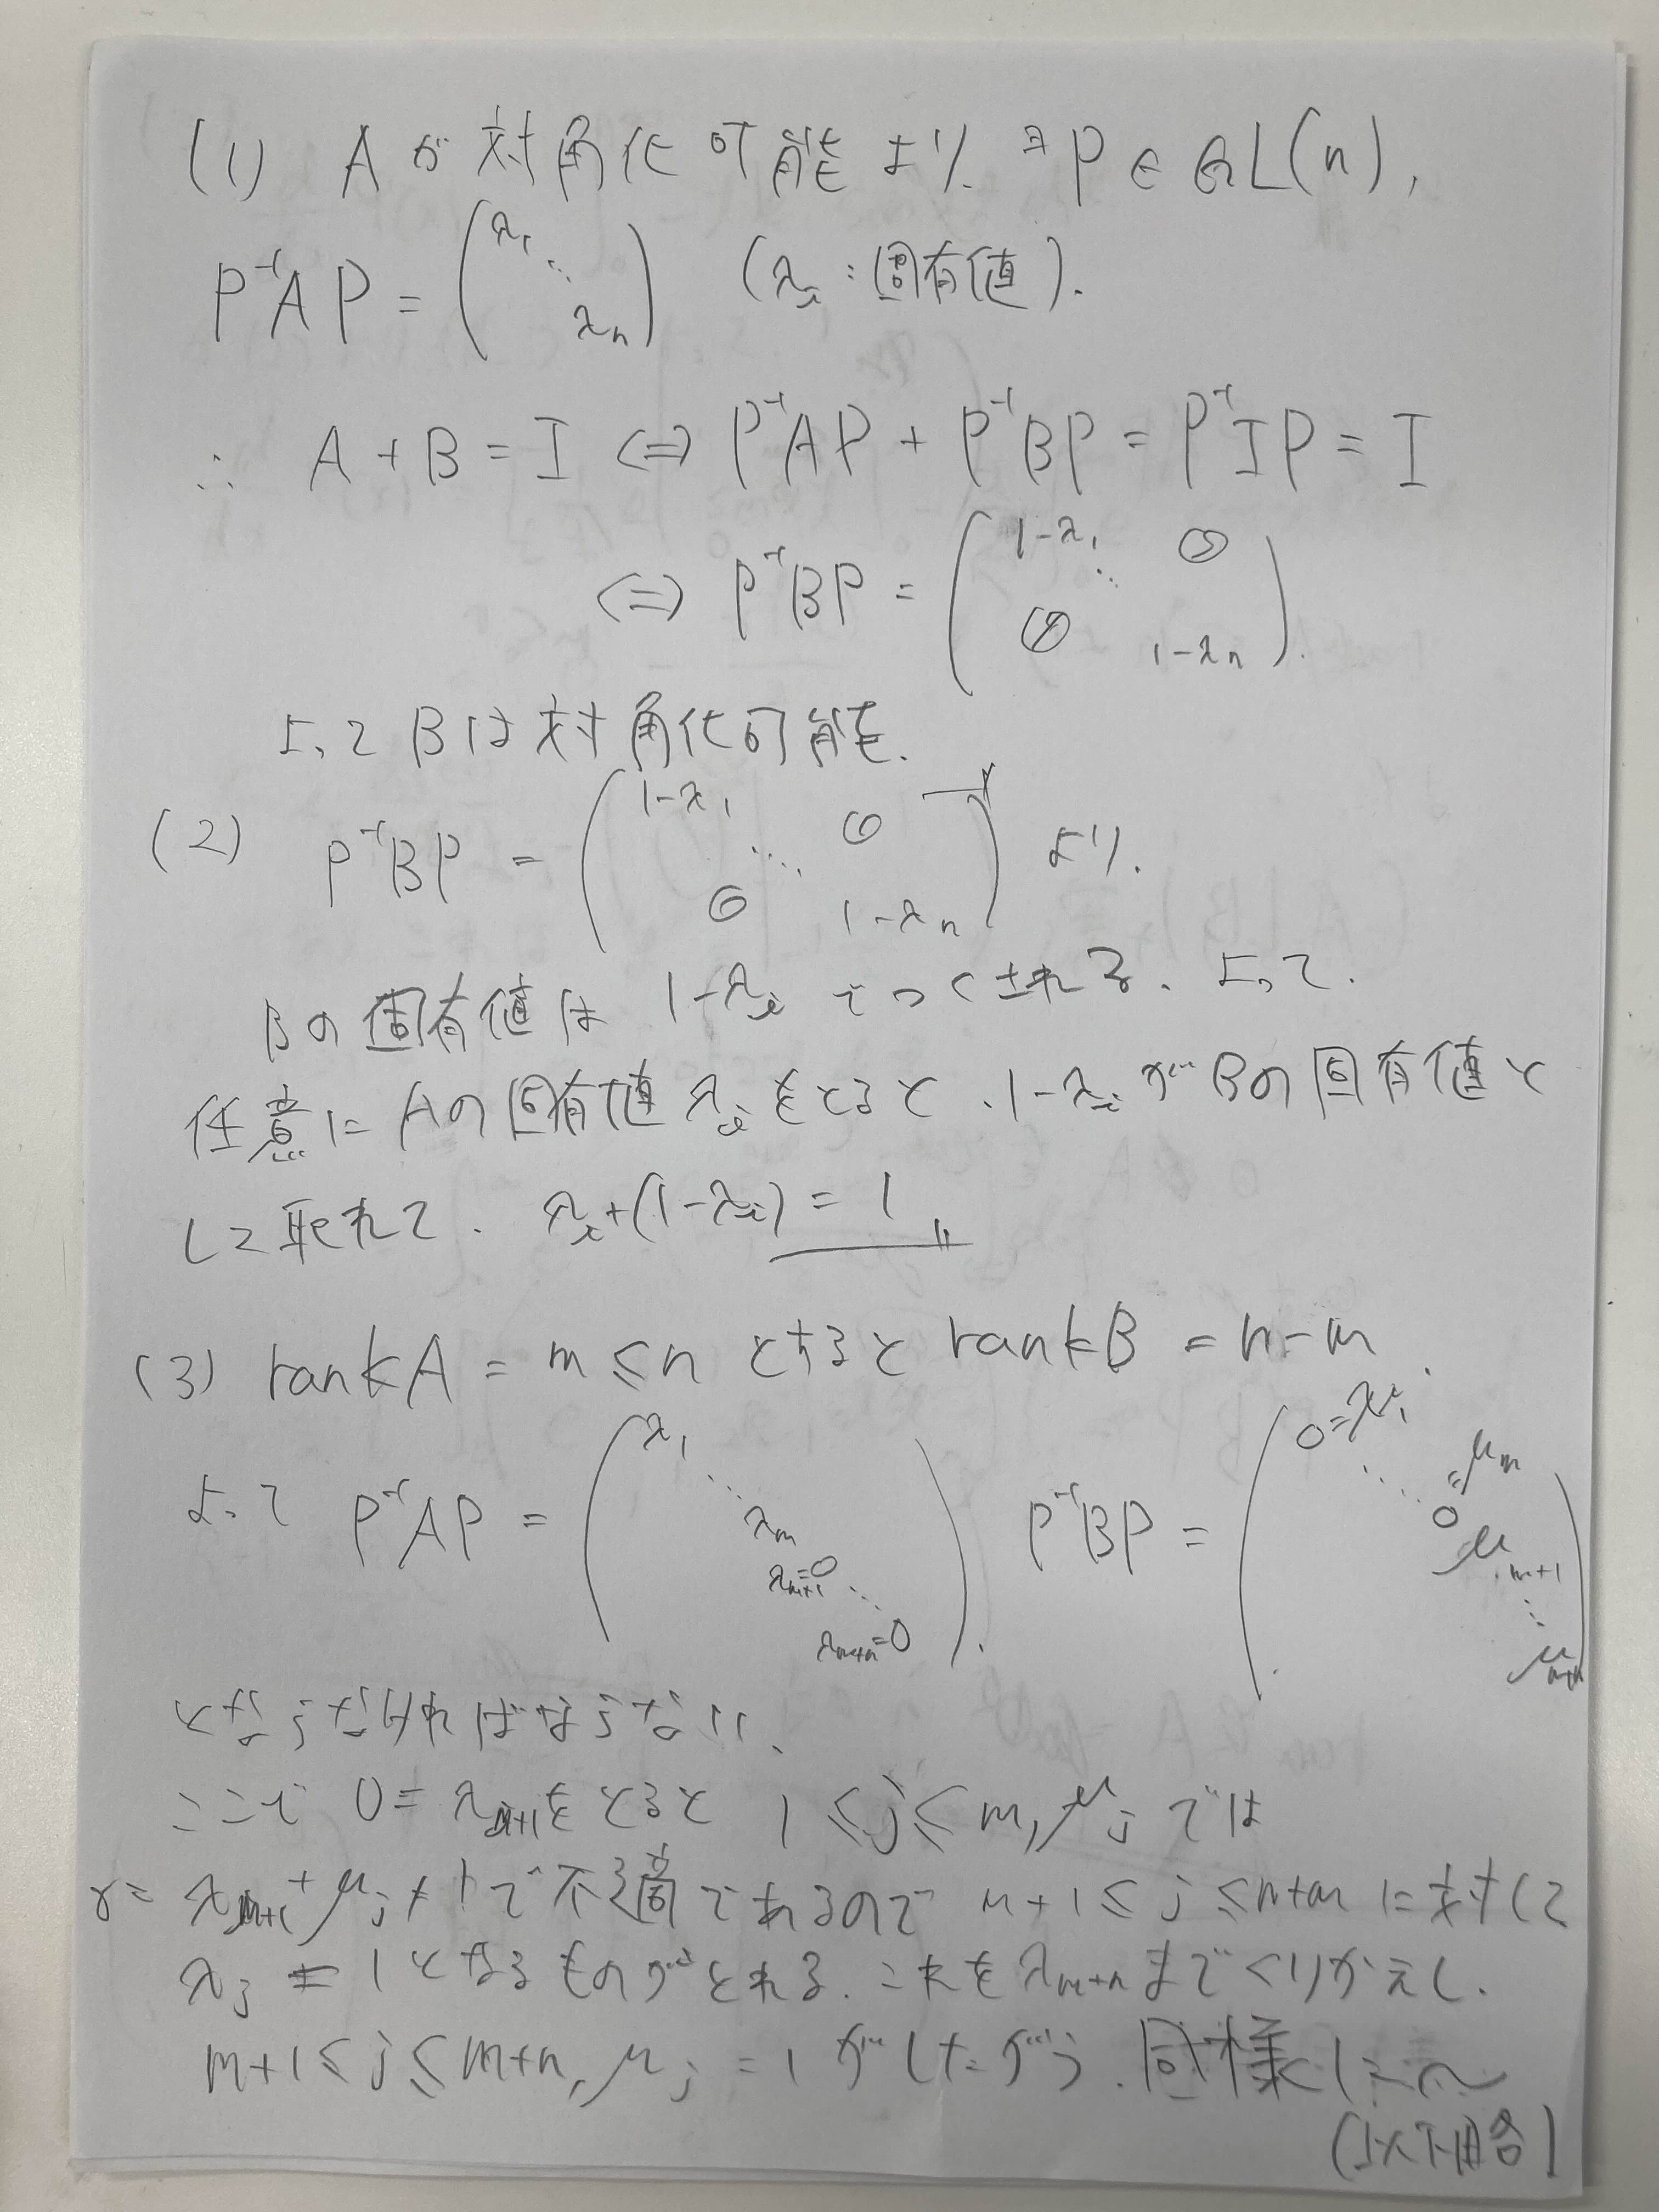 (1) Aが対角化可能より. ∃P∈GL(n),
P⁻¹AP = (λ₁ ⋱ λₙ) (λᵢ:固有値).
∴ A+B=I ⇔ P⁻¹AP + P⁻¹BP = P⁻¹IP = I
⇔ P⁻¹BP = (1-λ₁ ⋱ 1-λₙ 0 0).
よって Bは対角化可能.
(2) P⁻¹BP = (1-λ₁ ⋱ 1-λₙ 0 0) より.
Bの固有値は 1-λᵢ でつくされる. よって.
任意にAの固有値λᵢをとると. 1-λᵢがBの固有値と
して取れて. λᵢ+(1-λᵢ)=1 〃
(3) rankA = m≤n とすると rankB = n-m.
よって P⁻¹AP = (λ₁ ⋱ λₘ λₘ₊₁=0 ⋱ λₘ₊ₙ=0). P⁻¹BP = (0=μ₁ ⋱ 0=μₘ μₘ₊₁ ⋱ μₘ₊ₙ)
とならなければならない.
ここで 0=λₘ₊₁をとると 1≤j≤m, μⱼ では
λₘ₊₁+μⱼ≠1で不適であるので m+1≤j≤n+m に対して
λⱼ=1となるものがとれる. これをλₘ₊ₙまでくりかえし.
m+1≤j≤m+n, μⱼ=1がしたがう. 同様にして〜
(以下略)